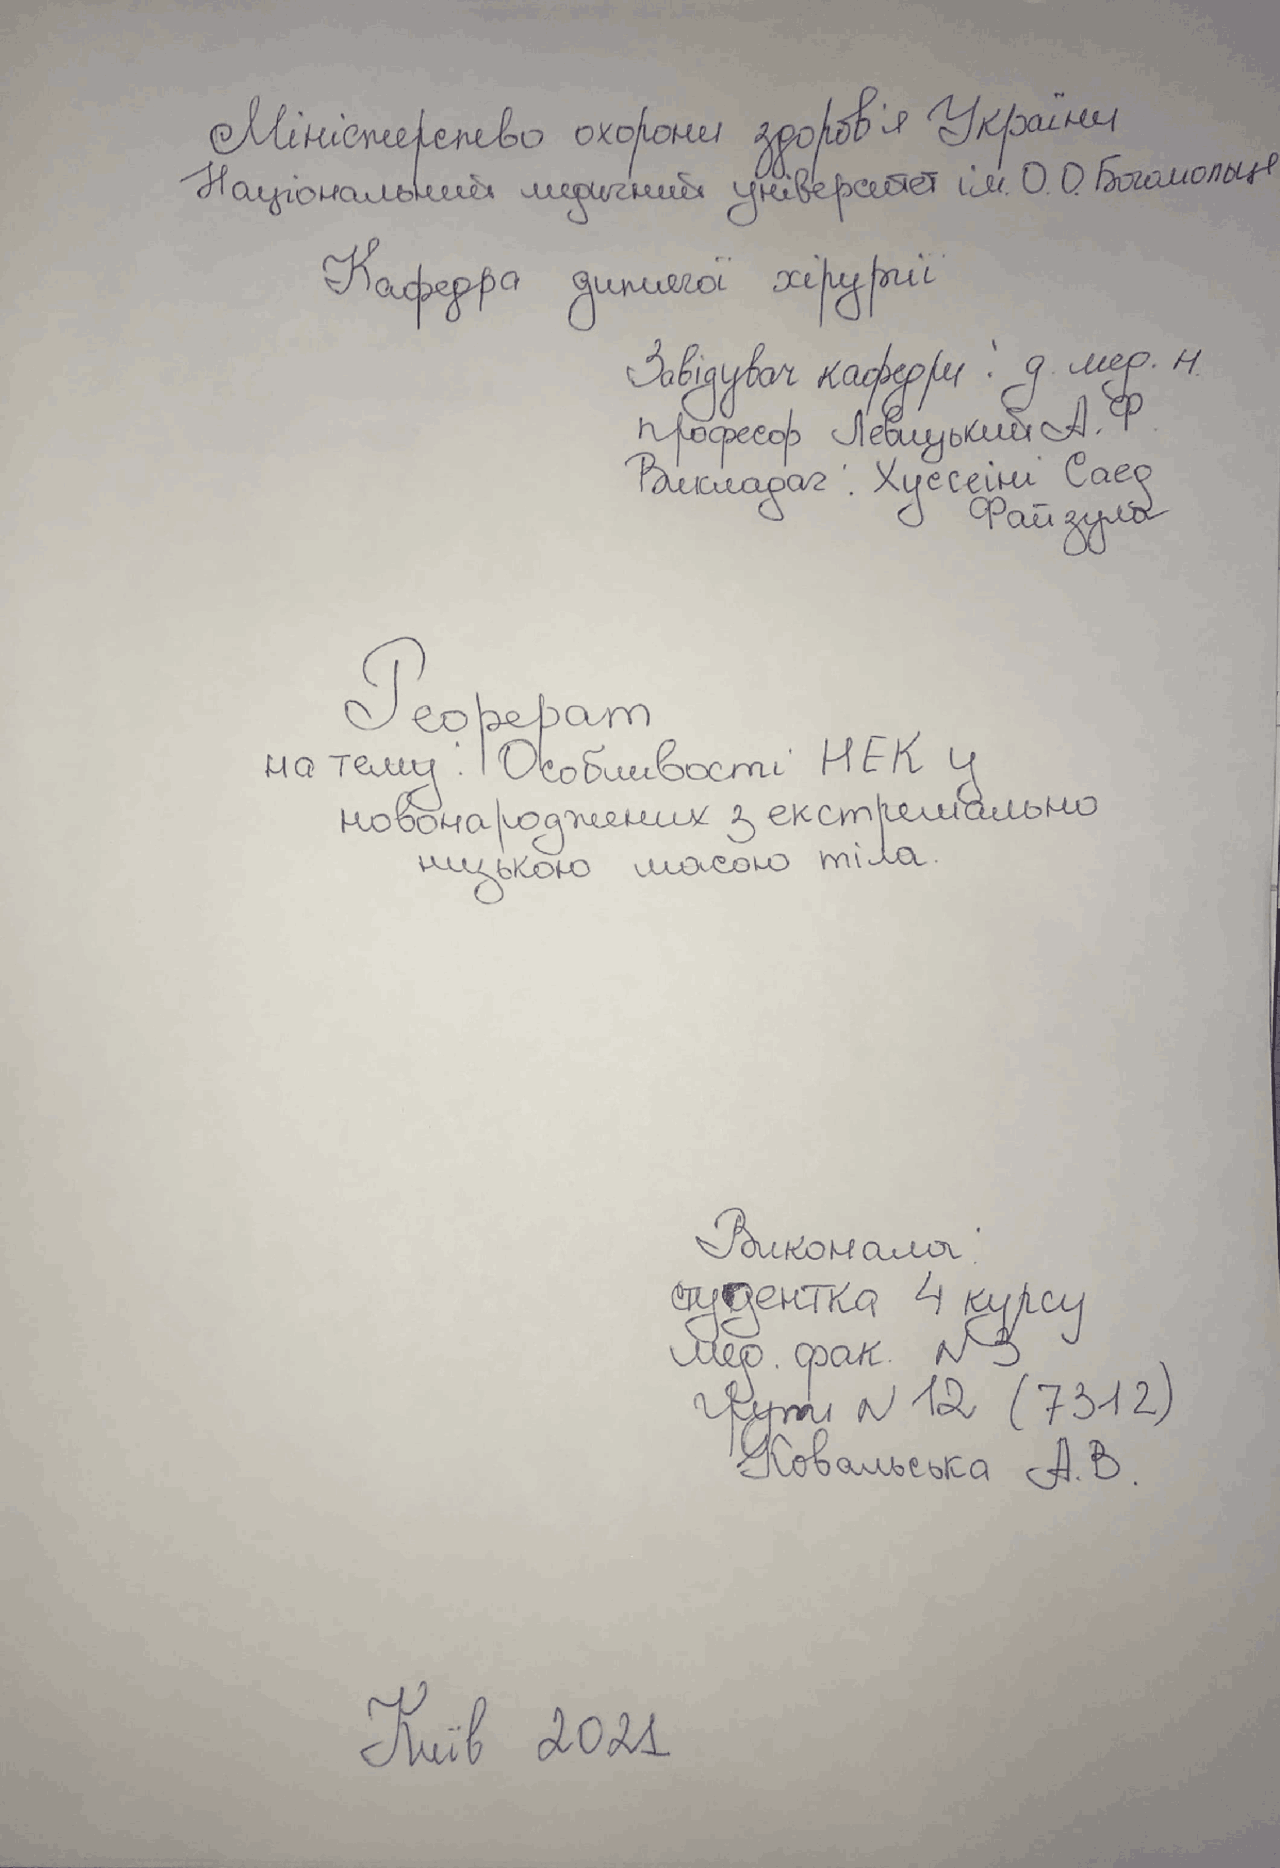 Міністерство охорони здоров'я України
Національний медичний університет ім. О.О. Богомольця
Кафедра дитячої хірургії
Завідувач кафедри: д. мед. н.
професор Левицький А.Ф.
Викладач: Хуссейні Саед
Файзула
Реферат
на тему: Особливості НЕК у
новонароджених з екстремально
низькою масою тіла.
Виконала:
студентка 4 курсу
мед. фак. №3
групи №12 (7312)
Ковальська А.В.
Київ 2021